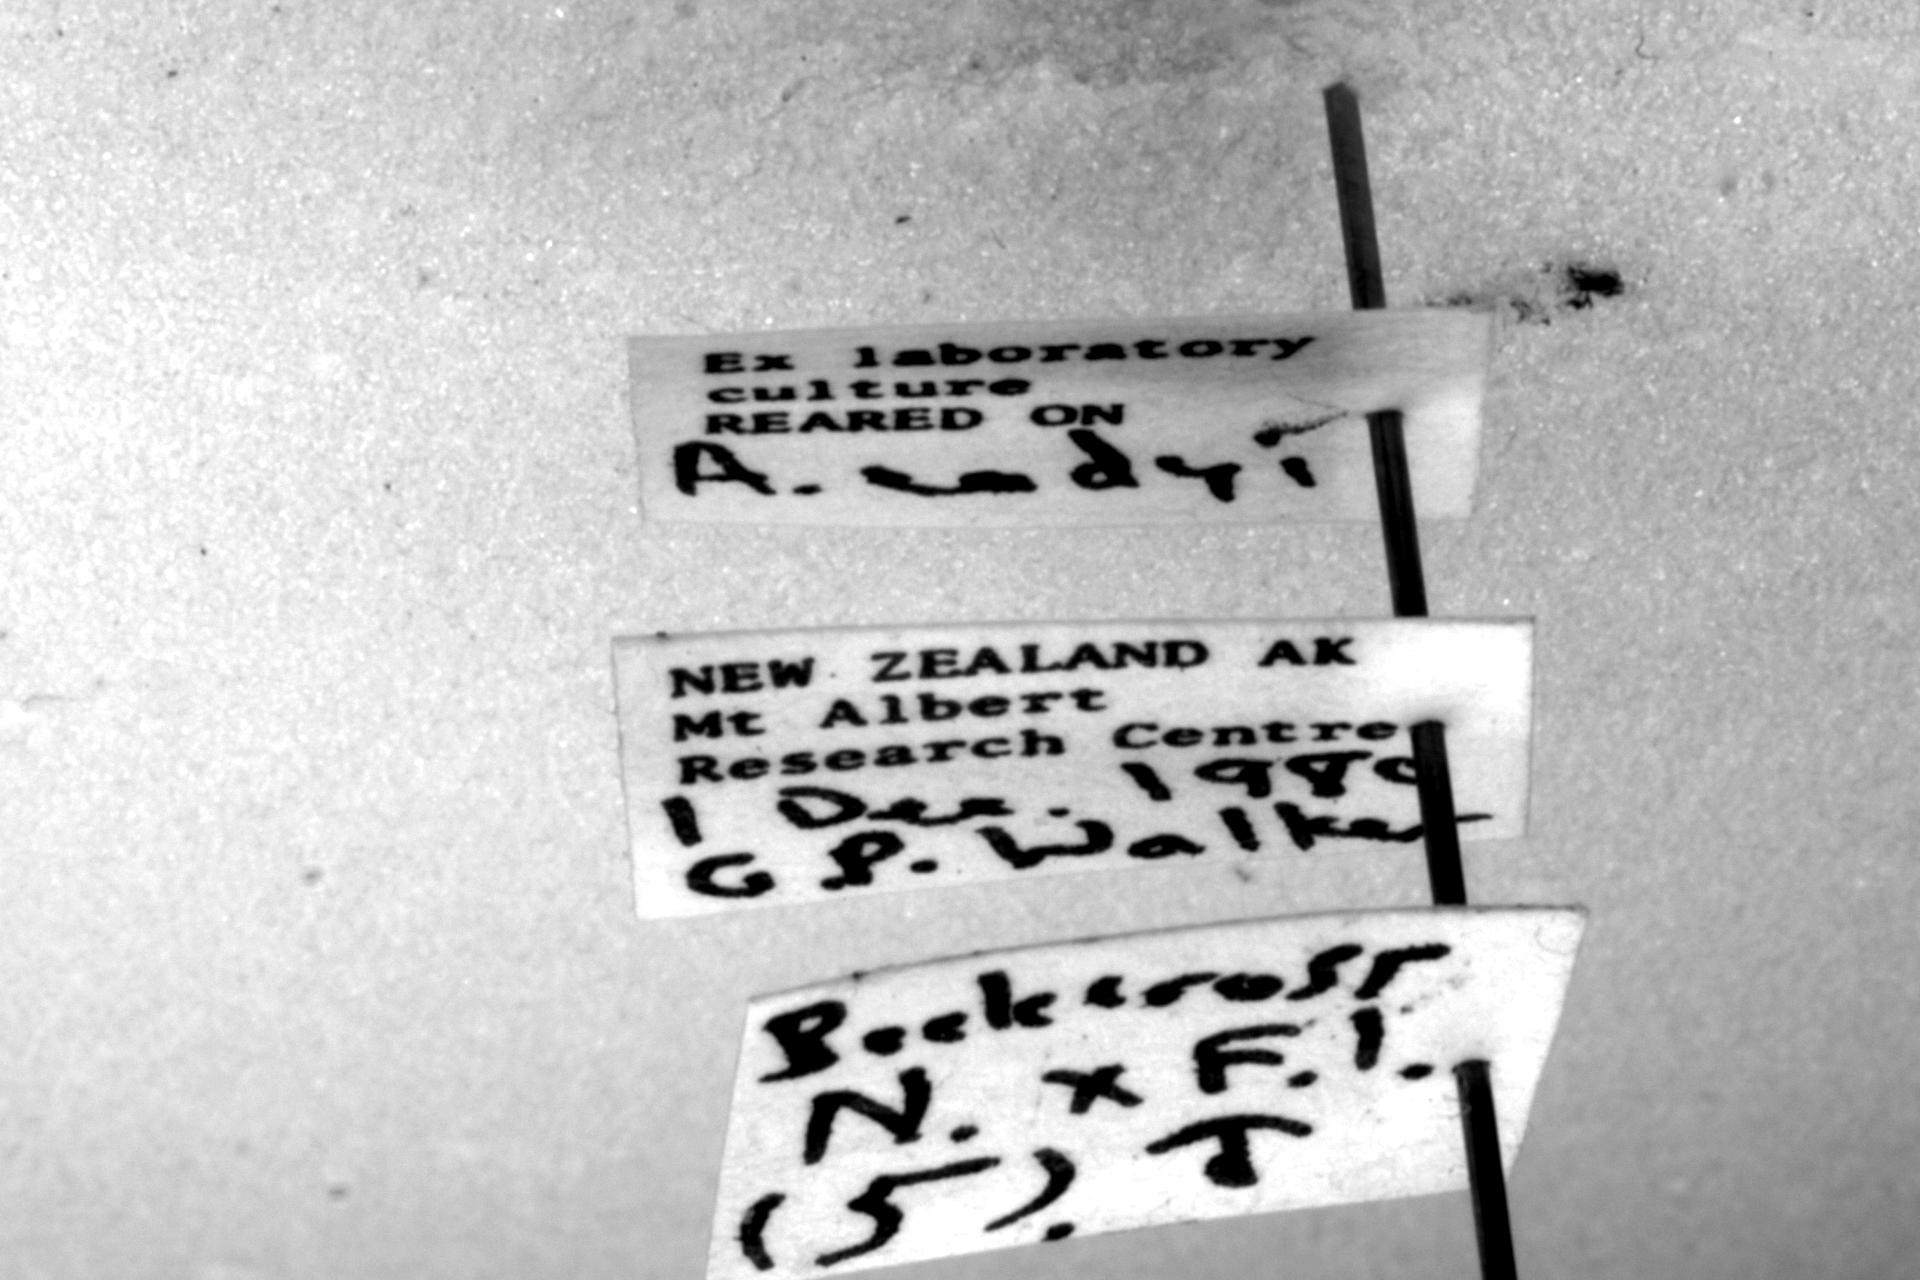 Ex laboratory
culture
REARED ON
A.
NEW ZEALAND AK
Mt Albert
Research Centre
1 Dec. 1980
G.P. Walker
Backcross
N. x F.1.
(5).